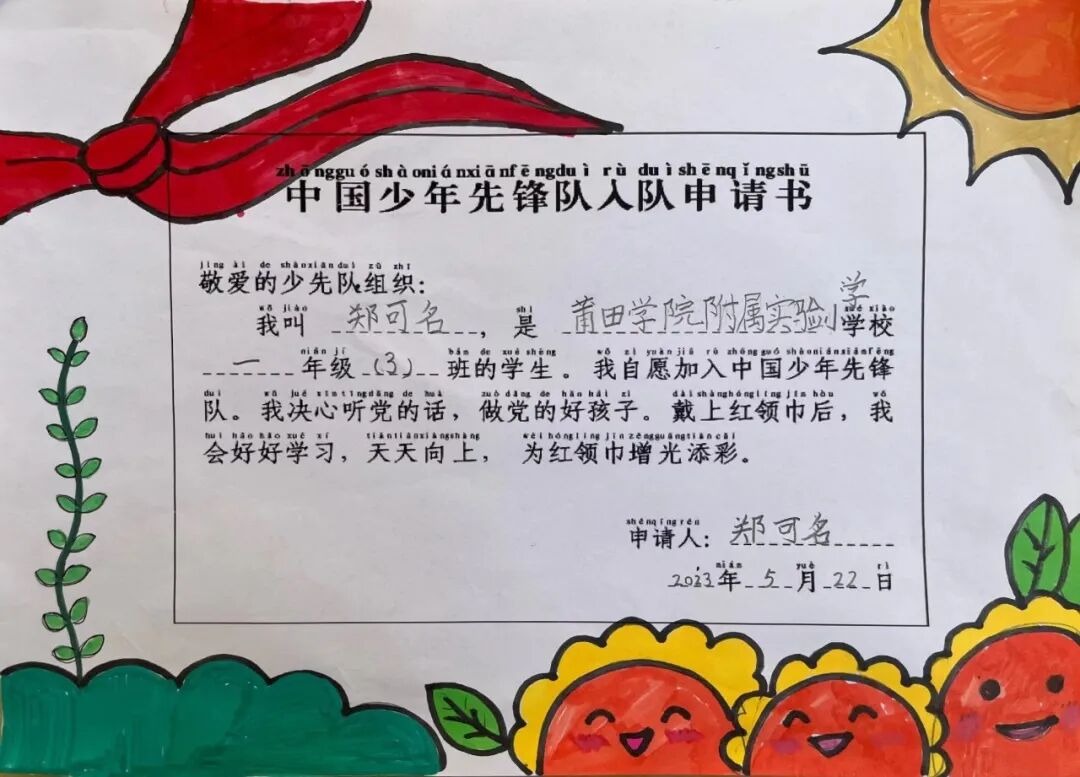 zhōngguóshàoniánxiānfēngduì rù duìshēnqǐngshū
中国少年先锋队入队申请书
jìng ài de shàoxiānduì zǔ zhī
敬爱的少先队组织：
wǒ jiào shì xué xiào
我叫 郑可名，是 莆田学院附属实验小学学校
nián jí bān de xué shēng wǒ zì yuàn jiā rù zhōng guó shàoniánxiānfēng
一 年级（3）班的学生。我自愿加入中国少年先锋
duì wǒ jué xīntīngdǎng de huà zuò dǎng de hǎo hái zi dài shànghónglǐng jīn hòu wǒ
队。我决心听党的话，做党的好孩子。戴上红领巾后，我
huì hǎo hǎo xué xí tiāntiānxiàngshàng wèi hónglǐng jīn zēngguāngtiāncǎi
会好好学习，天天向上，为红领巾增光添彩。
shēnqǐngrén
申请人：郑可名
nián yuè rì
2023年 5 月 22 日